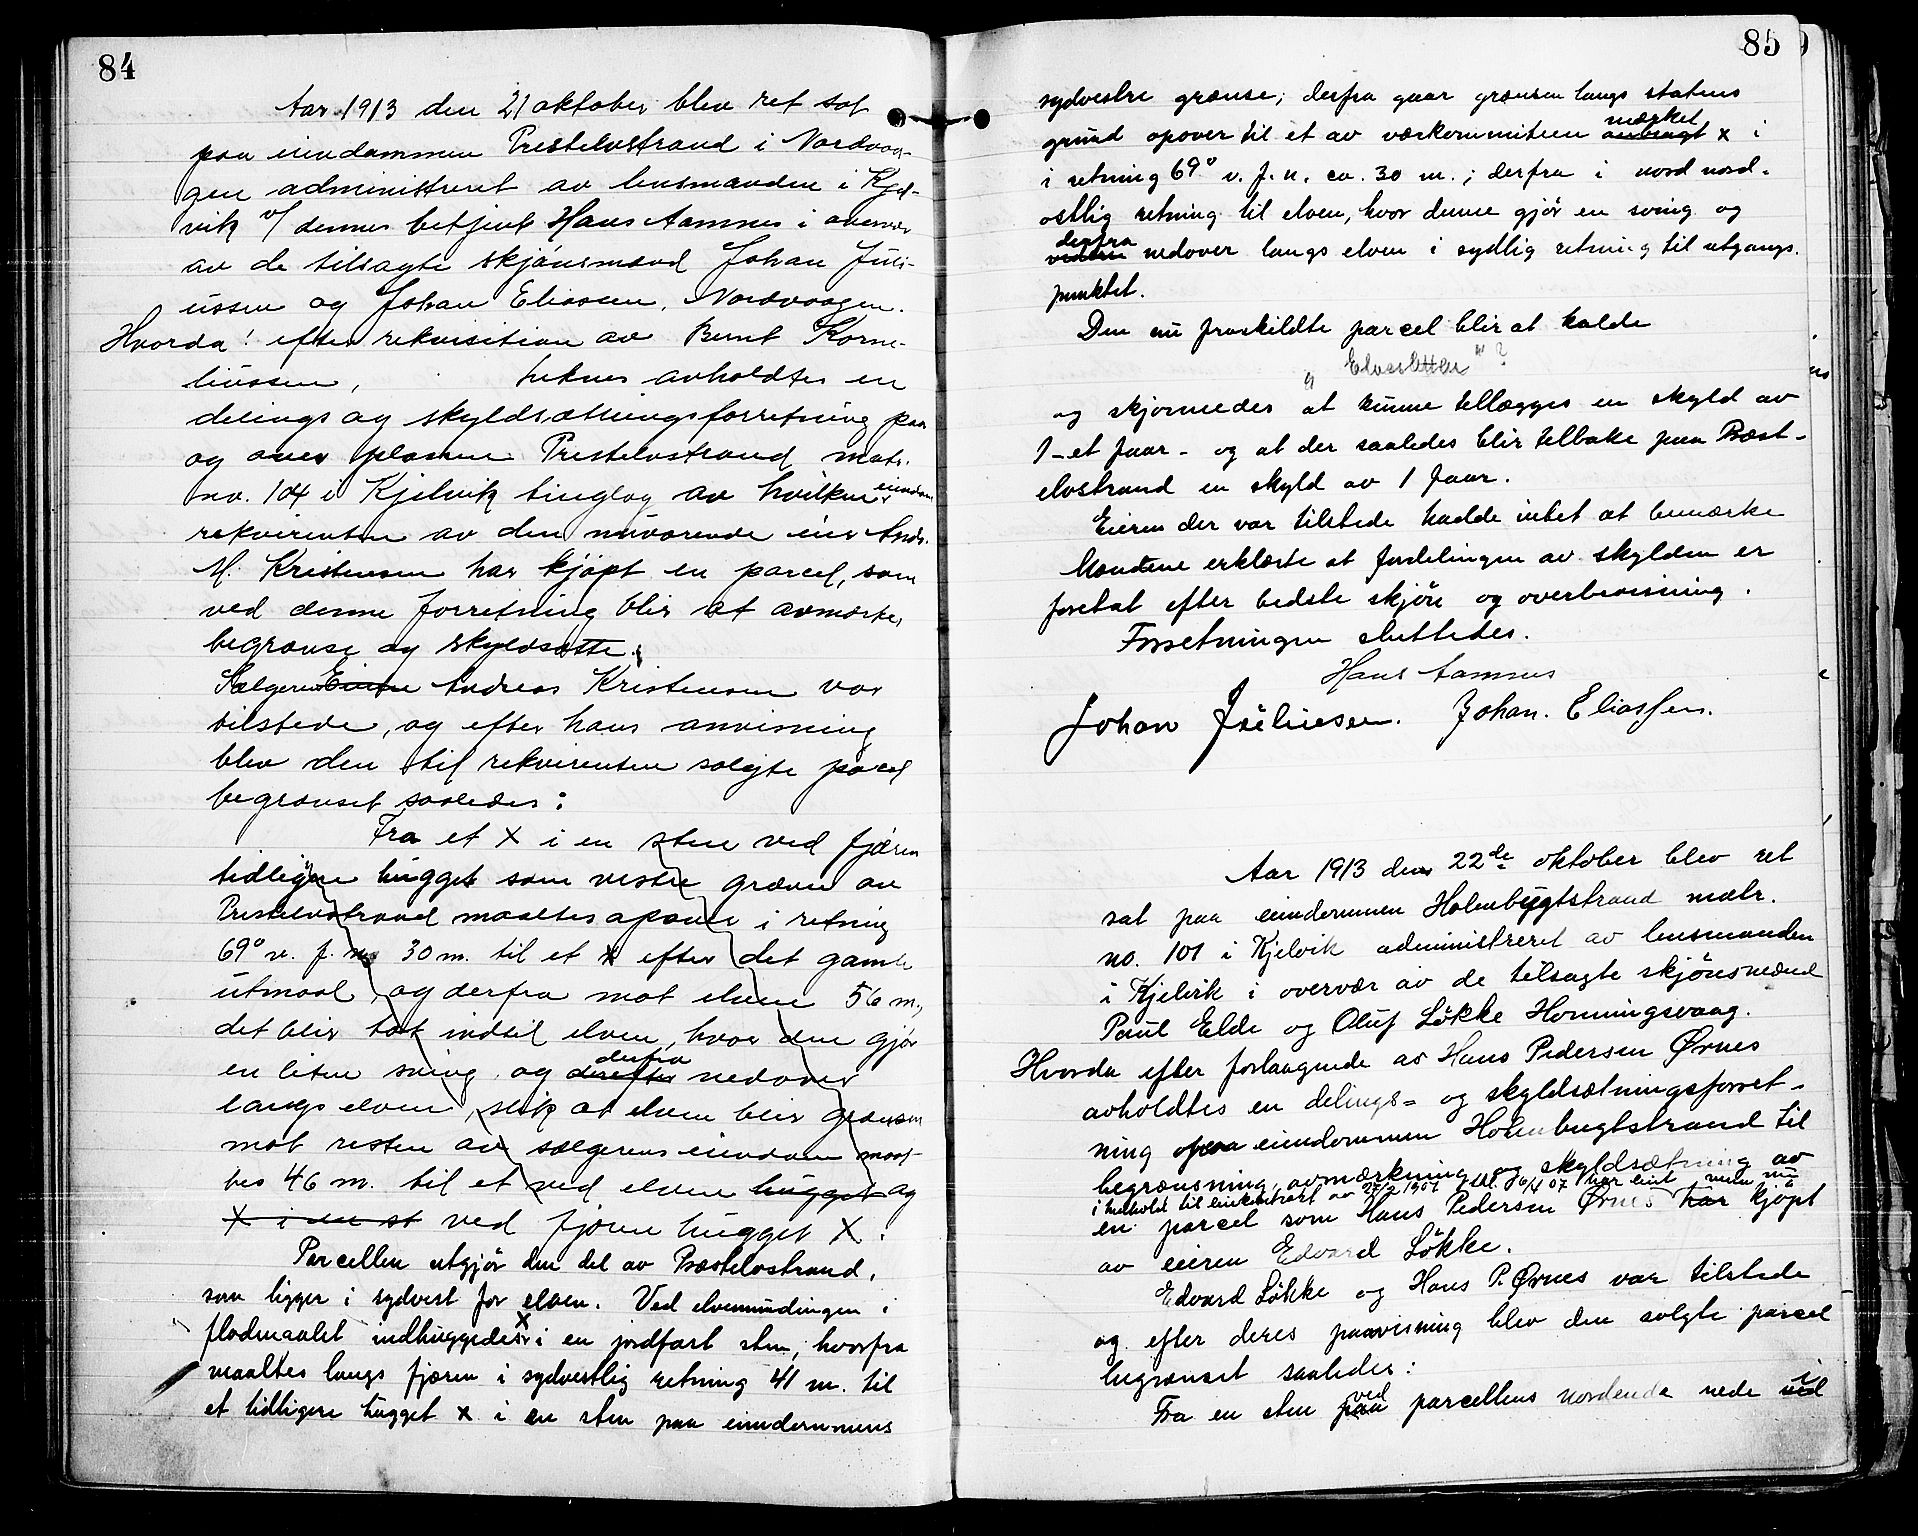 84
Aar 1913 den 21 oktober blev ret sat
paa eiendommen Prestelvstrand i Nordvaa-
gen administreret av lensmanden i Kjel-
vik v/ dennes betjent Hans Aamnes i overvær
av de tilsagte skjønsmænd Johan Juli-
ussen og Johan Eliassen, Nordvaagen.
Hvorda! efter rekvisition av Bernt Korne-
liussen, avholdtes en
delings og skyldsætningsforretning paa
og over plassen Prestelvstrand matr.
no. 104 i Kjelvik tinglag av hvilken eiendom
rekvirenten av den nuværende eier Andr.
M. Kristensen har kjøpt en parcel, som
ved denne forretning blir at avmerke,
begrænse og skyldsætte.
Sælgeren Eieren Andreas Kristensen var
tilstede, og efter hans anvisning
blev den til rekvirenten solgte parcel
begrænset saaledes:
Fra et X i en sten ved fjæren
tidligere hugget som vestre grænse av
Prestelvstrand maaltes opover i retning
69° v. f. n. 30 m. til et X efter det gamle
utmaal, og derfra mot elven 56 m,
det blir tat indtil elven, hvor den gjør
en liten sving og derefter derfra nedover
langs elven, slik at elven blir grænsen
mot resten av sælgerens eiendom maal-
tes 46 m. til et ved elven hugget og
X i en st ved fjæren hugget X.
Parcellen utgjør den del av Præstelvstrand,
som ligger i sydvest for elven. Ved elvemundingen i
flodmaalet indhuggedes X i en jordfast sten, hvorfra
maaltes langs fjæren i sydvestlig retning 41 m. til
et tidligere hugget X i en sten paa eiendommens
85
sydvestre grænse; derfra gaar grænsen langs statens
grund opover til et av væskommiteen anbragt mærket X i
i retning 69° v. f. n. ca. 30 m.; derfra i nord nord-
ostlig retning til elven, hvor denne gjør en sving og
videre derfra nedover langs elven i sydlig retning til utgangs-
punktet.
Den nu fraskildte parcel blir at kalde
"Elvesletten"?
og skjønnedes at kunne tillægges en skyld av
1 - et Jaar - og at der saaledes blir tilbake paa Præst-
elvstrand en skyld av 1 Jaar.
Eieren der var tilstede hadde intet at bemærke
Mændene erklærte at fordelingen av skylden er
foretat efter bedste skjøn og overbevisning.
Forretningen sluttedes.
Hans Aamnes
Johan Juliussen. Johan. Eliassen.
Aar 1913 den 22de oktober blev ret
sat paa eiendommen Holmbugtstrand matr.
no. 101 i Kjelvik administreret av lensmanden
i Kjelvik i overvær av de tilsagte skjønsmænd
Paul Elde og Oluf Løkke Honningsvaag.
Hvorda efter forlangende av Hans Pedersen Ørnes
avholdtes en delings- og skyldsætningsforret-
ning paa eiendommen Holmbugtstrand til
begrænsning, avmærkning og skyldsætning av
i henhold til leiekontrakt av 27/2 1907 tgl. 16/4 07 har leiet men nu
en parcel som Hans Pedersen Ørnes har kjøpt
av eieren Edvard Løkke.
Edvard Løkke og Hans P. Ørnes var tilstede
og efter deres paavisning blev den solgte parcel
begrænset saaledes:
Fra en sten paa ved parcellens nordende nede ved i